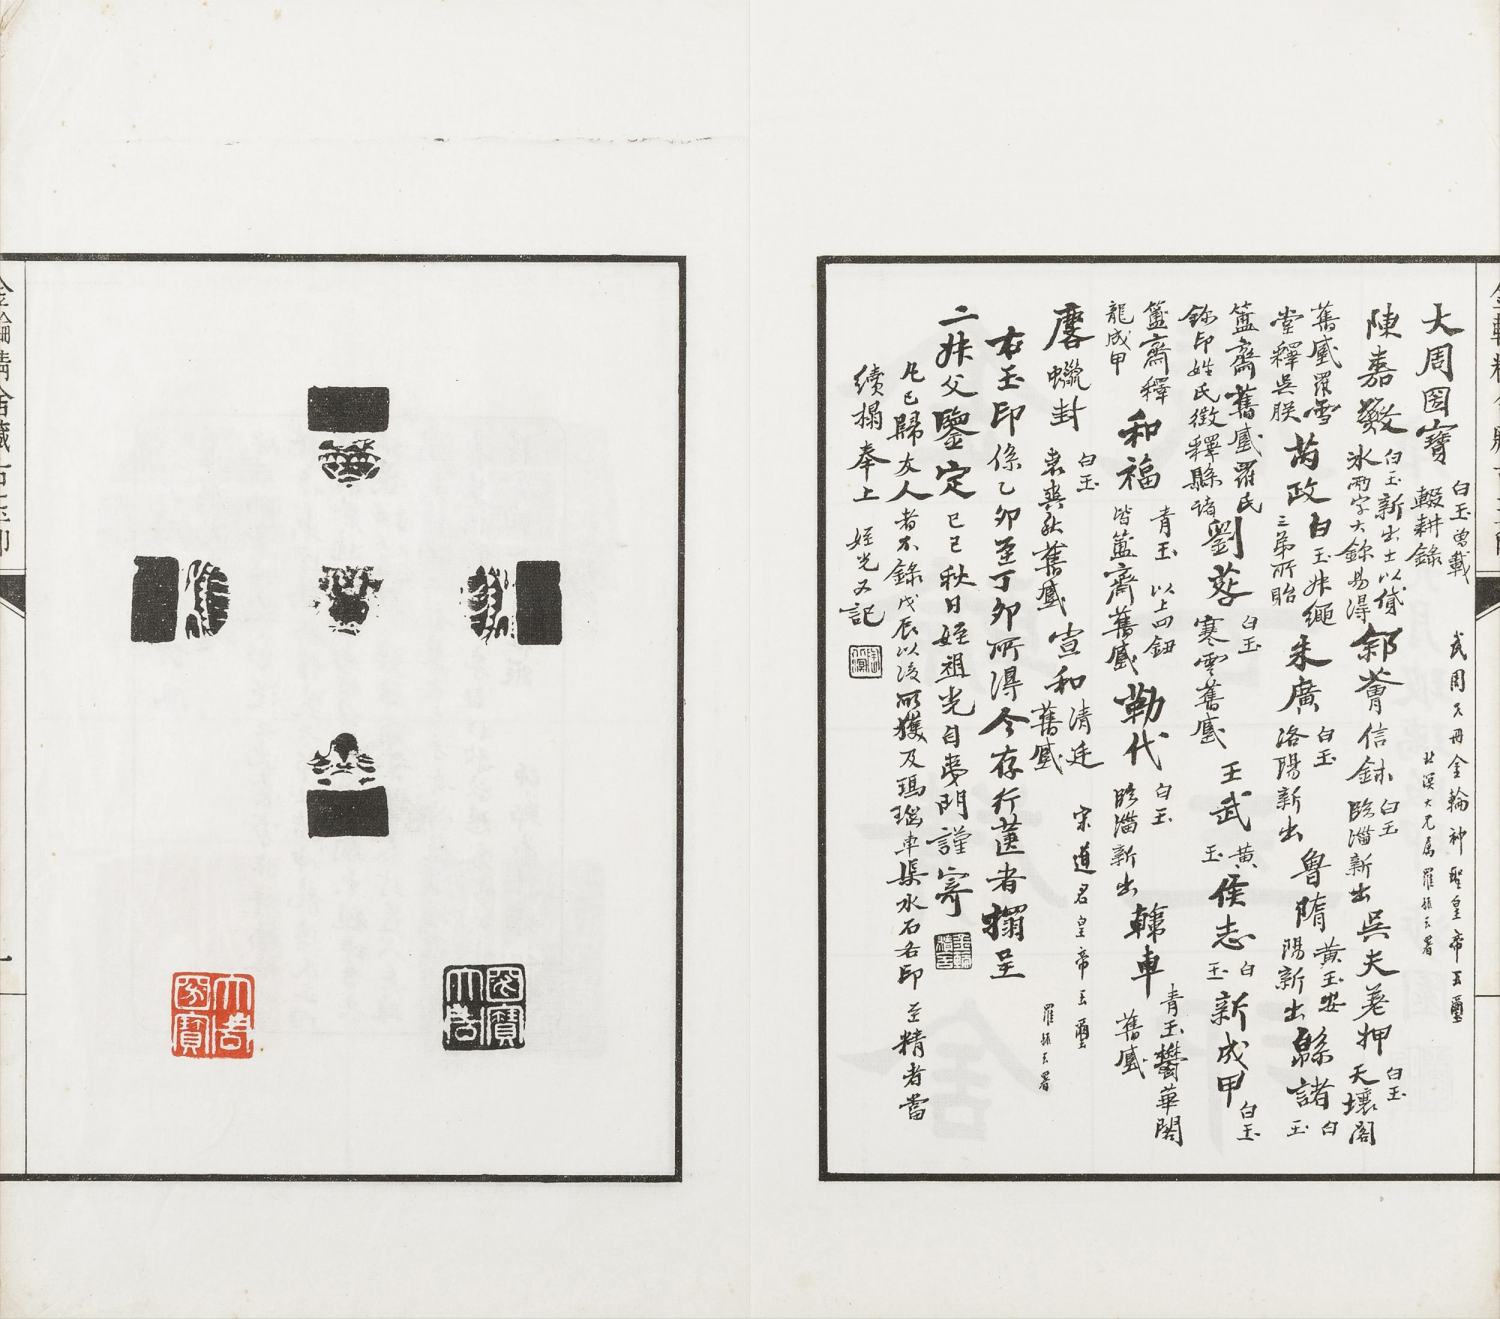 大周圀寶 白玉曾載輟耕錄 武周天冊金輪神聖皇帝玉璽 北溟大兄屬羅振玉署
陳嘉 白玉新出土以貸冰兩字大鉨易得 信鉨 白玉臨淄新出 吳夫 押 白玉天壤閣
舊藏羅雪堂釋吳朕 芮政 白玉妹繩三弟所貽 朱廣 白玉洛陽新出 魯隋 黃玉安陽新出 緜諸 白玉
簠齋舊藏羅氏鉨印姓氏徵釋縣諸 劉 白玉寒雲舊藏 王武 黃玉 侯志 白玉 新成甲 白玉
簠齋釋龍成甲 和福 青玉以上四鈕皆簠齋舊藏 勒代 白玉臨淄新出 車 青玉鬱華閣舊藏
蠟封 白玉袁爽秋舊藏 宣和 清廷舊藏 宋道君皇帝玉璽 羅振玉署
右玉印係乙卯至丁卯所得今存行篋者搨呈
二妹父鑒定 己巳秋日姪祖光自粵門謹寄
凡已歸友人者不錄戊辰以後所獲及瑪瑙車渠水石各印至精者當
續搨奉上 姪光又記
金輪精舍藏古玉印
大周圀寶
大周圀寶